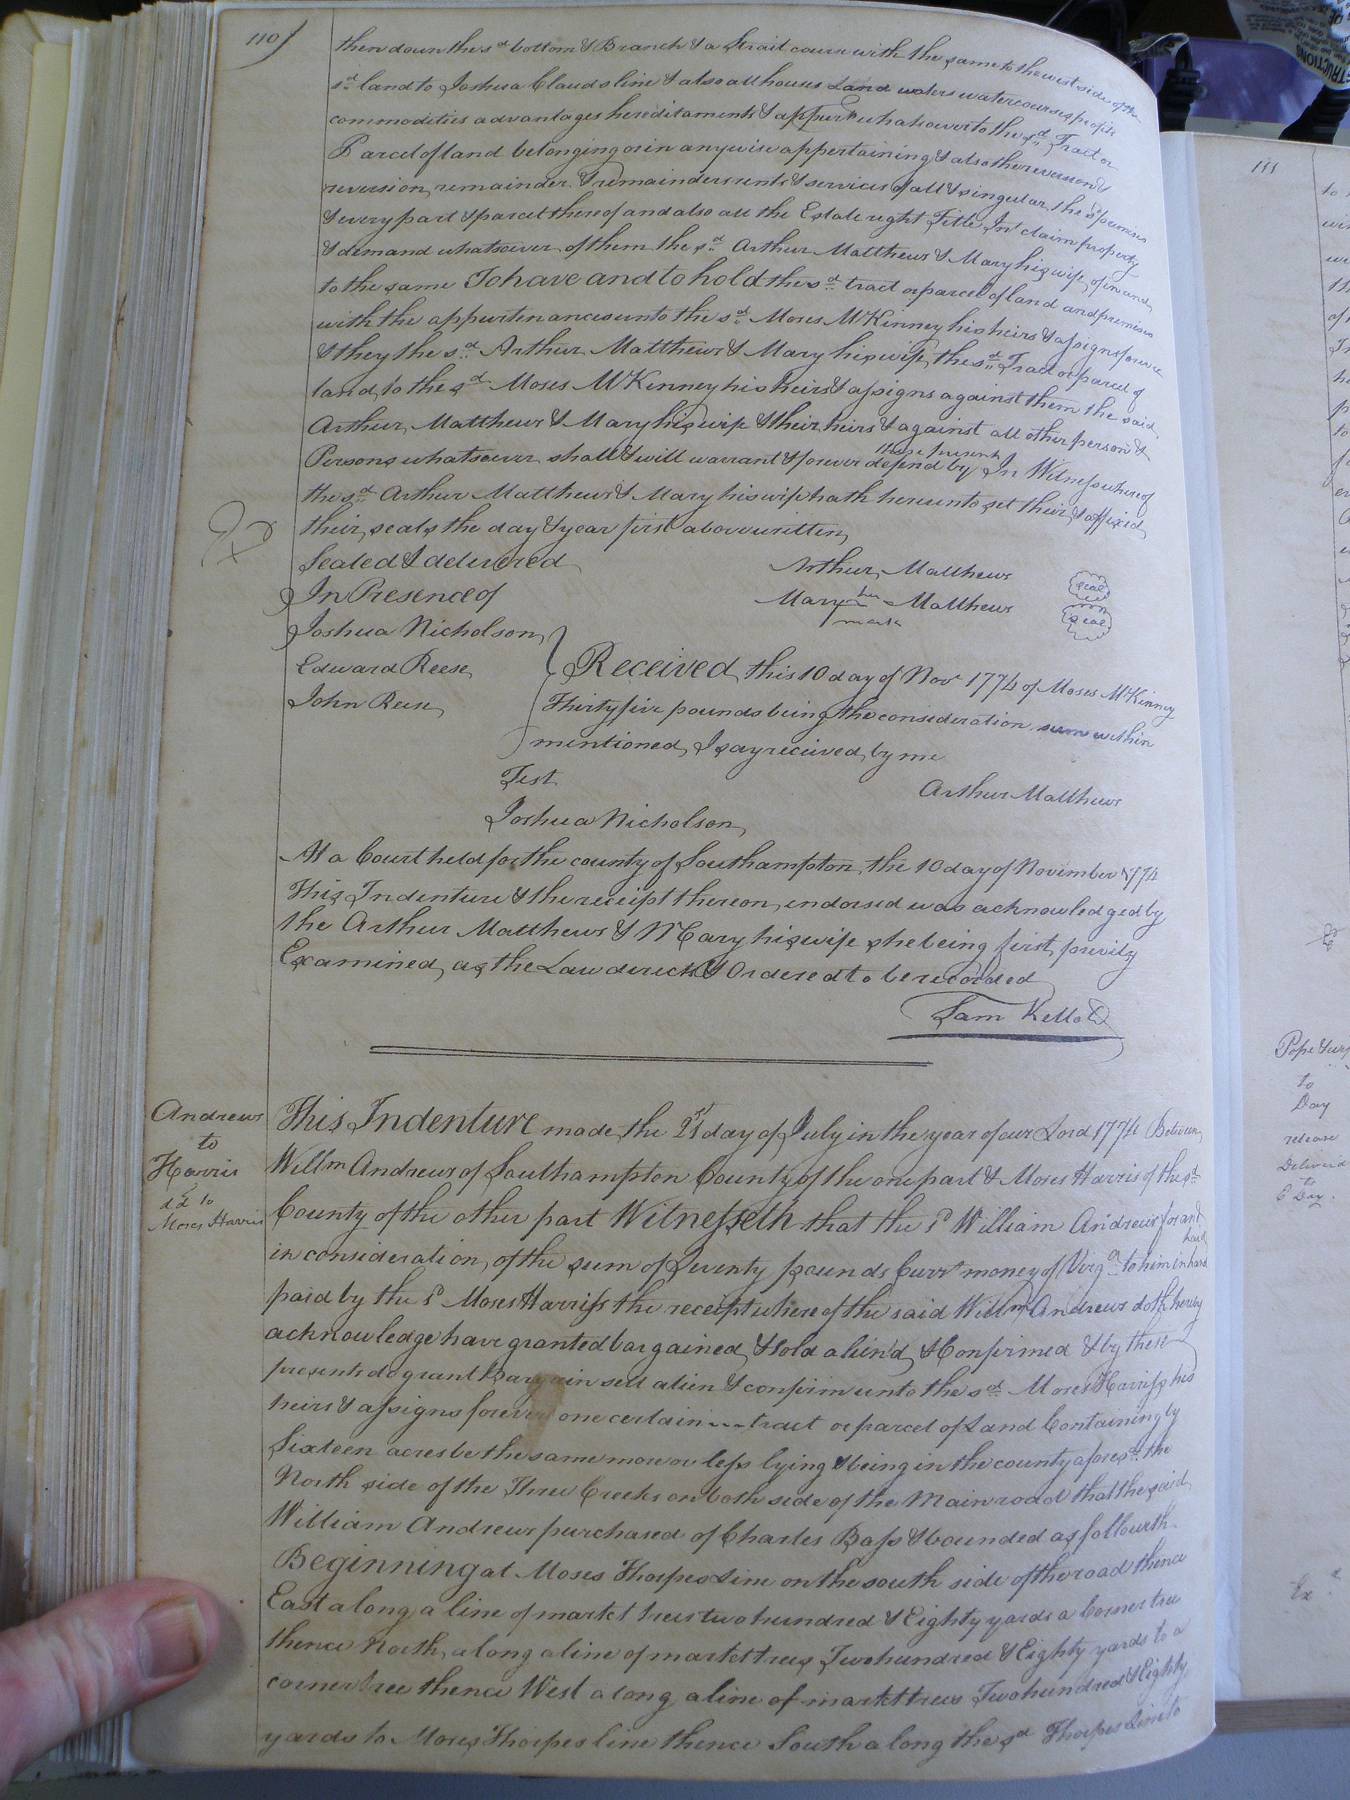 110
then down the sd bottom & Branch & a Strait course with the same to the west side of the
sd land to Joshua Clauds line & also all houses Land waters watercourses profits
commodities advantages hereditaments & appurts whatsoever to the sd Tract or
Parcel of land belonging or in any wise appertaining & also the reversion &
reversion, remainder & remainders rents & services of all & singular the sd premises
& every part & parcel thereof and also all the Estate right Title Int claim property
& demand whatsoever of them the sd Arthur Matthews & Mary his wife of in and
to the same To have and to hold the sd tract or parcel of land and premises
with the appurtenances unto the sd Moses McKinney his heirs & assigns forever
& they the sd Arthur Matthews & Mary his wife, the sd Tract or parcel of
land, to the sd Moses McKinney his heirs & assigns against them the said
Arthur Matthews & Mary his wife & their heirs & against all other person &
Persons whatsoever shall & will warrant & forever defend by these presents In Witness whereof
the sd Arthur Matthews & Mary his wife hath hereunto set their & affixed
their seals the day & year first above written,
Sealed & delivered
In Presence of
Arthur Matthews seal
Mary her mark Matthews seal
Joshua Nicholson
Edward Reese
John Reese
Received this 10 day of Novr 1774 of Moses McKinney
Thirty five pounds being the consideration sum within
mentioned, I say received by me
Test
Arthur Matthews
Joshua Nicholson
At a Court held for the county of Southampton, the 10 day of November 1774
This Indenture & the receipt thereon endorsed was acknowledged by
the Arthur Matthews & Mary his wife she being first privily
Examined, as the Law directs & Ordered to be recorded
Sam Kello
Andrews
to
Harris
dd to
Moses Harris
This Indenture made the 21st day of July in the year of our Lord 1774 Between
Willm Andrews of Southampton County of the one part & Moses Harris of the sd
County of the other part Witnesseth that the sd William Andrews for and
in consideration, of the sum of Twenty pounds Currt money of Virga to him in hand
paid by the sd Moses Harriss the receipt where of the said Willm Andrews doth hereby
acknowledge have granted bargained, & sold alien'd, & Confirmed & by these
presents do grant Bargain sell alien & confirm unto the sd Moses Harriss his
heirs & assigns forever one certain tract or parcel of Land Containing by
Sixteen acres be the same more or less lying & being in the county aforesd the
North side of the Three Creeks on both side of the Main road that the said
William Andrews purchased of Charles Bass & bounded as followeth
Beginning at Moses Thorpes Line on the south side of the road thence
East along a line of markt trees two hundred & Eighty yards a Corner tree
thence North, along a line of markt trees Two hundred & Eighty yards to a
corner tree thence West along a line of markt trees Two hundred & Eighty
yards to Moses Thorpes line thence South along the sd Thorpes Line to
111
Pope & wife
to
Day
release
Delivered
to
E Day.
Ex